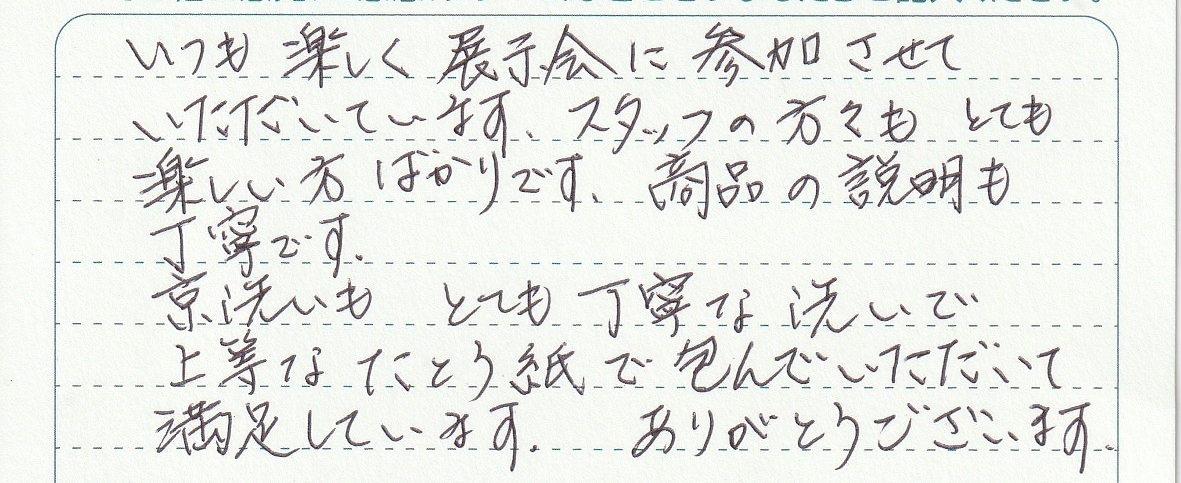 いつも 楽しく 展示会に 参加 させて
いただいています。スタッフの 方々も とても
楽しい 方 ばかりです。商品の 説明も
丁寧です。
京洗いも とても 丁寧な 洗いで
上等な たとう紙で 包んでいただいて
満足しています。 ありがとうございます。